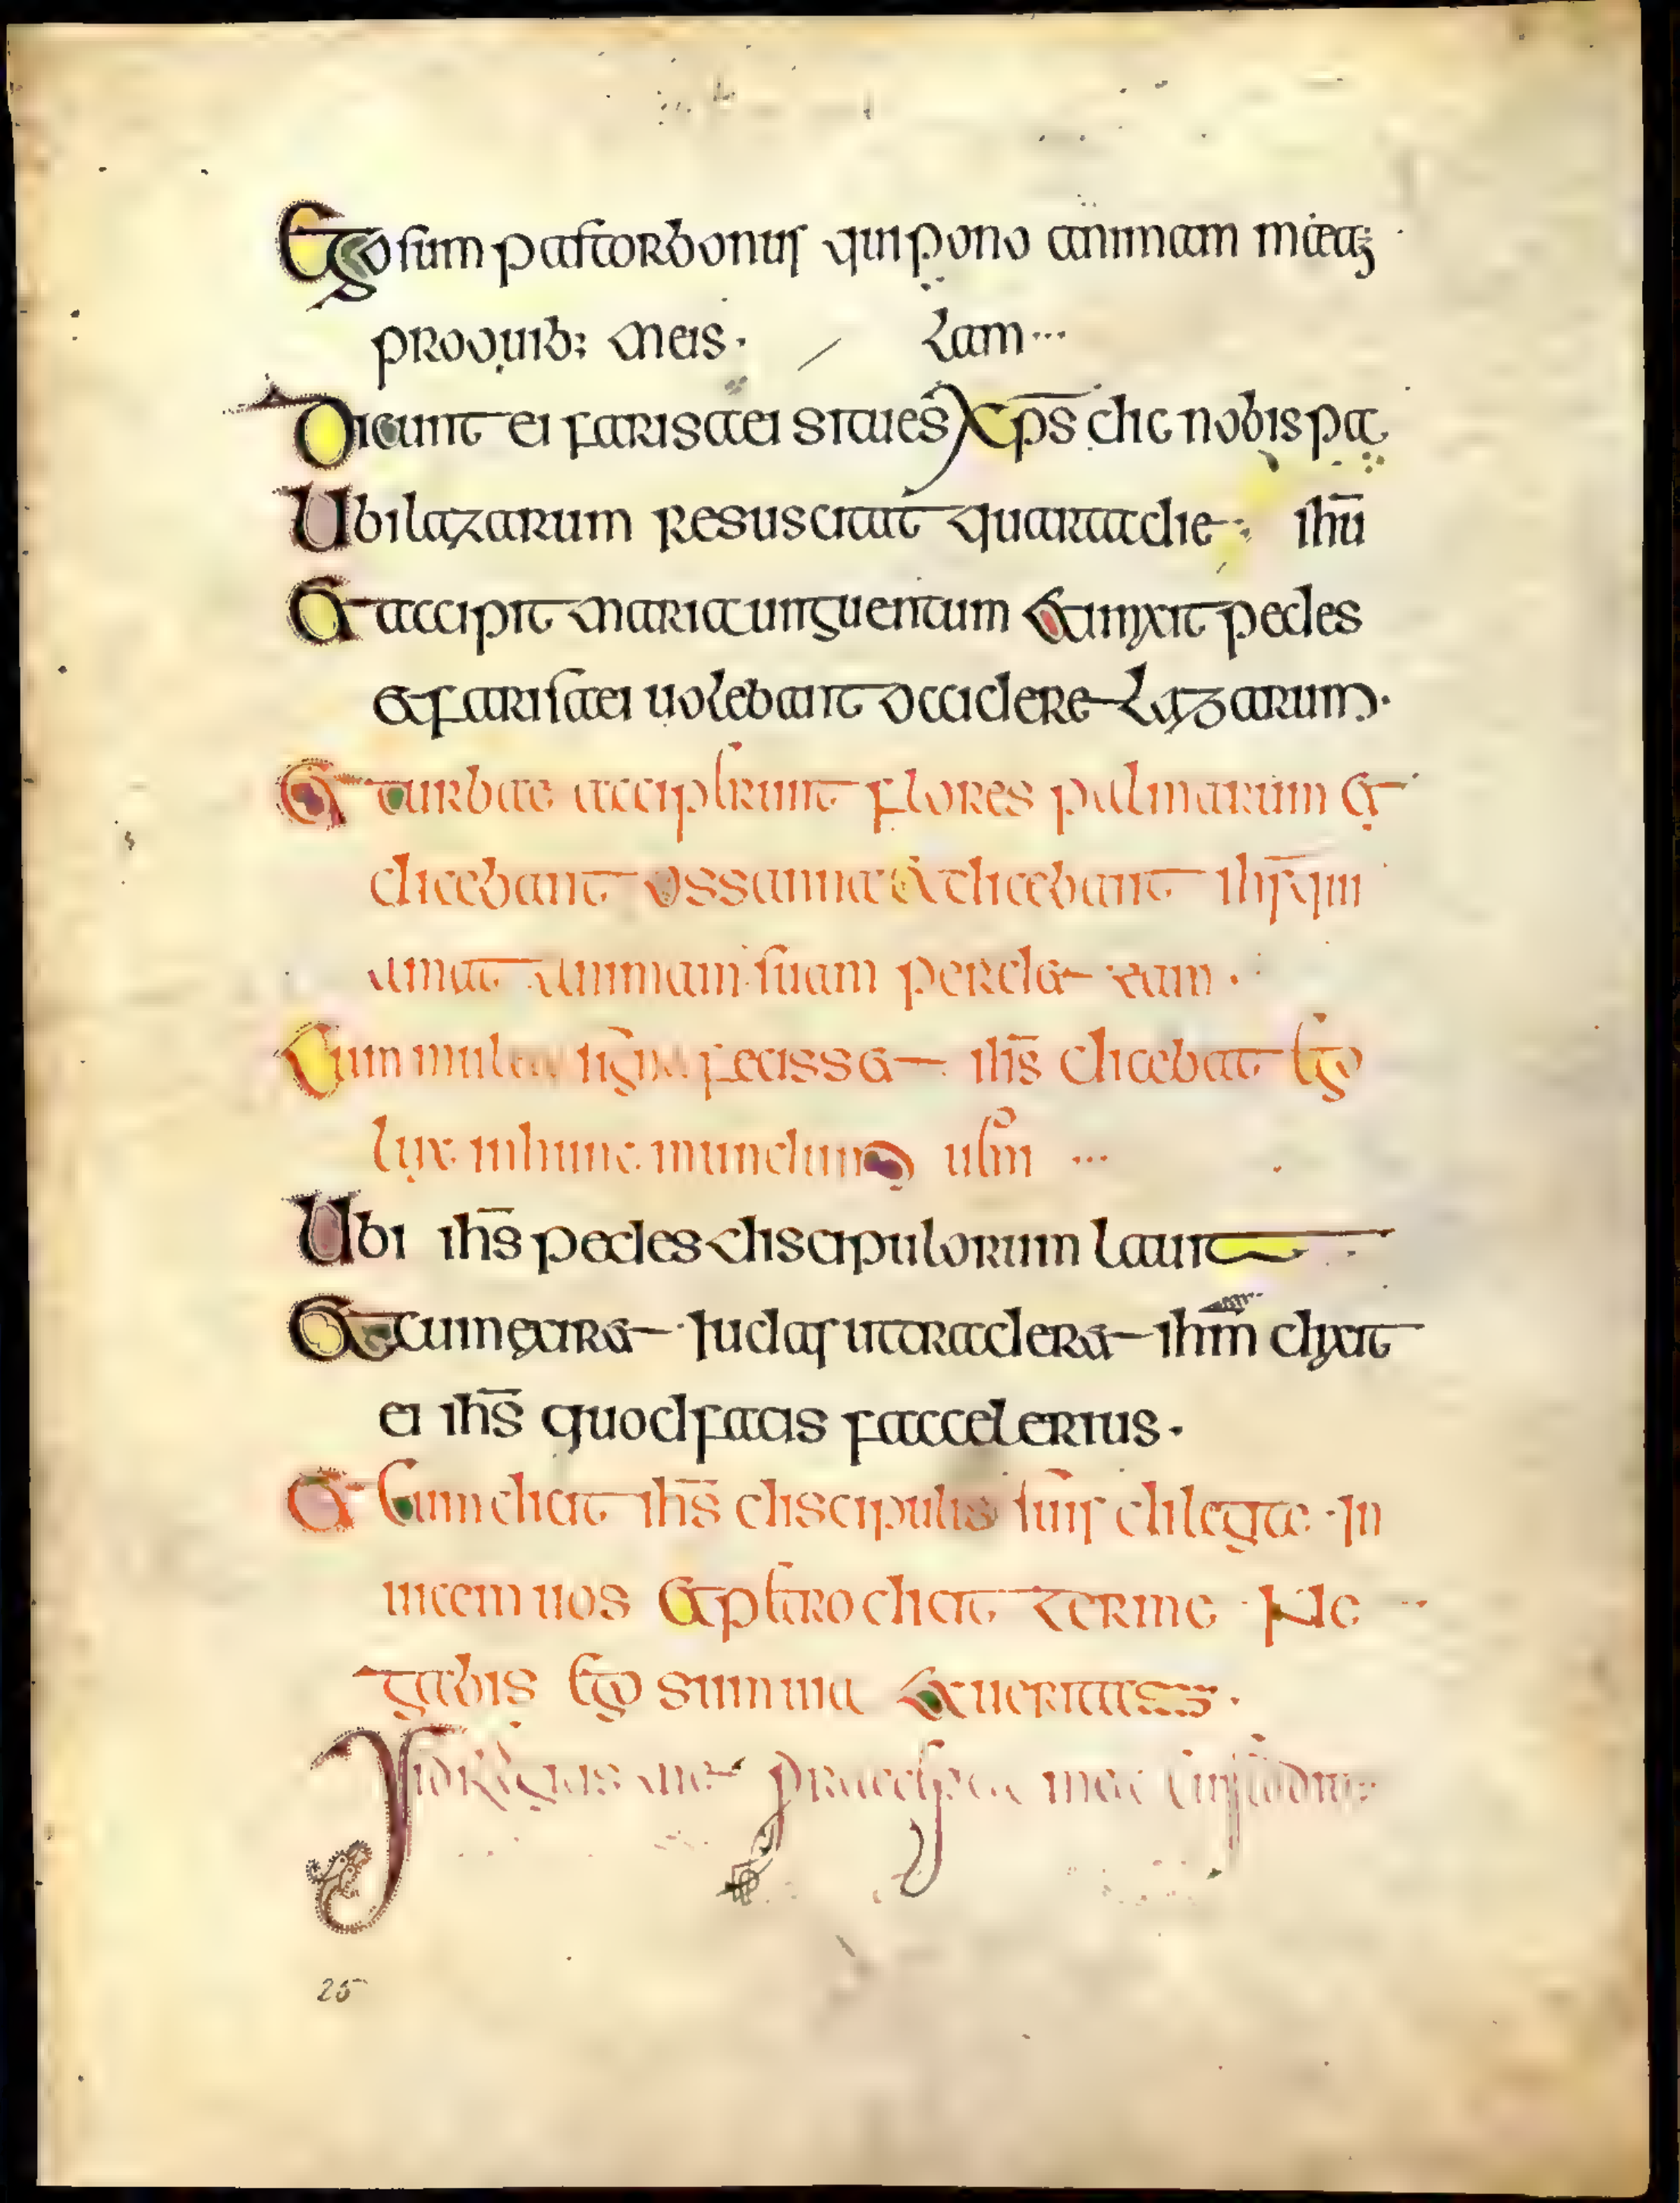 Ego sum pastor bonus qui pono animam meam
pro ouib; meis. / lam...
Dicunt ei farisaei si tu es xp̄s dic nobis pa
Ubi lazarum resuscitauit quarta die ihū
Et accipit maria unguentum & unxit pedes
& farisaei uolebant occidere lazarum.
Et turbae acciperunt flores palmarum &
dicebant ossanna & dicebant ihs qui
amat animam suam perdet eam.
Cum multa signa fecisset ihs̄ dicebat ego
lux in hunc mundum uen̄ ...
Ubi ihs̄ pedes discipulorum lauit
Et cum exiret iudas ut traderet ihm̄ dixit
ei ihs̄ quod facis fac celerius.
Et cum dicit ihs̄ discipulis suis diligite in
uicem uos & petro dicit ter me ne
gabis ego sum uia & ueritas.
praecepta mea
25